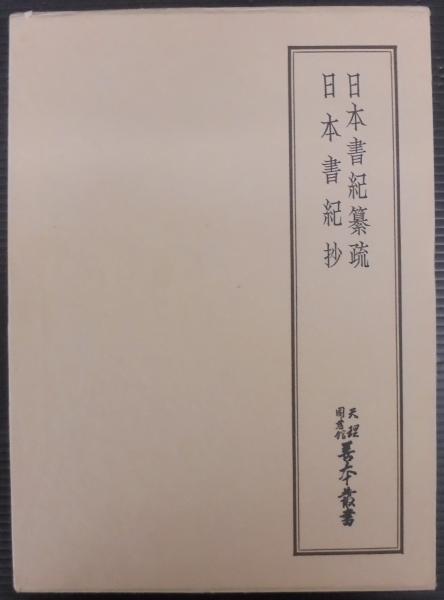 日本書紀纂疏
日本書紀抄
天理
図書館
善本叢書